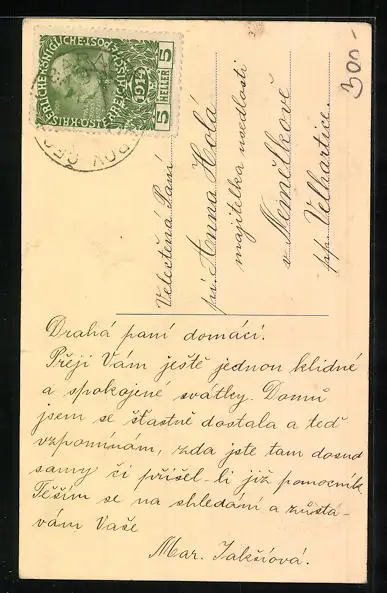 300.-
KAISERLICHE KÖNIGLICHE ÖSTERREICHISCHE POST
5 HELLER 5
1912
Velectěná Paní
pí. Anna Holá
majitelka usedlosti
v Němčkově
pp. Velhartice.
Drahá paní domácí.
Přeji Vám ještě jednou klidné
a spokojené svátky. Domů
jsem se šťastně dostala a teď
vzpomínám, zda jste tam dosud
samy či přišel-li již pomocník.
Těším se na shledání a zůstá-
vám Vaše
Mar.